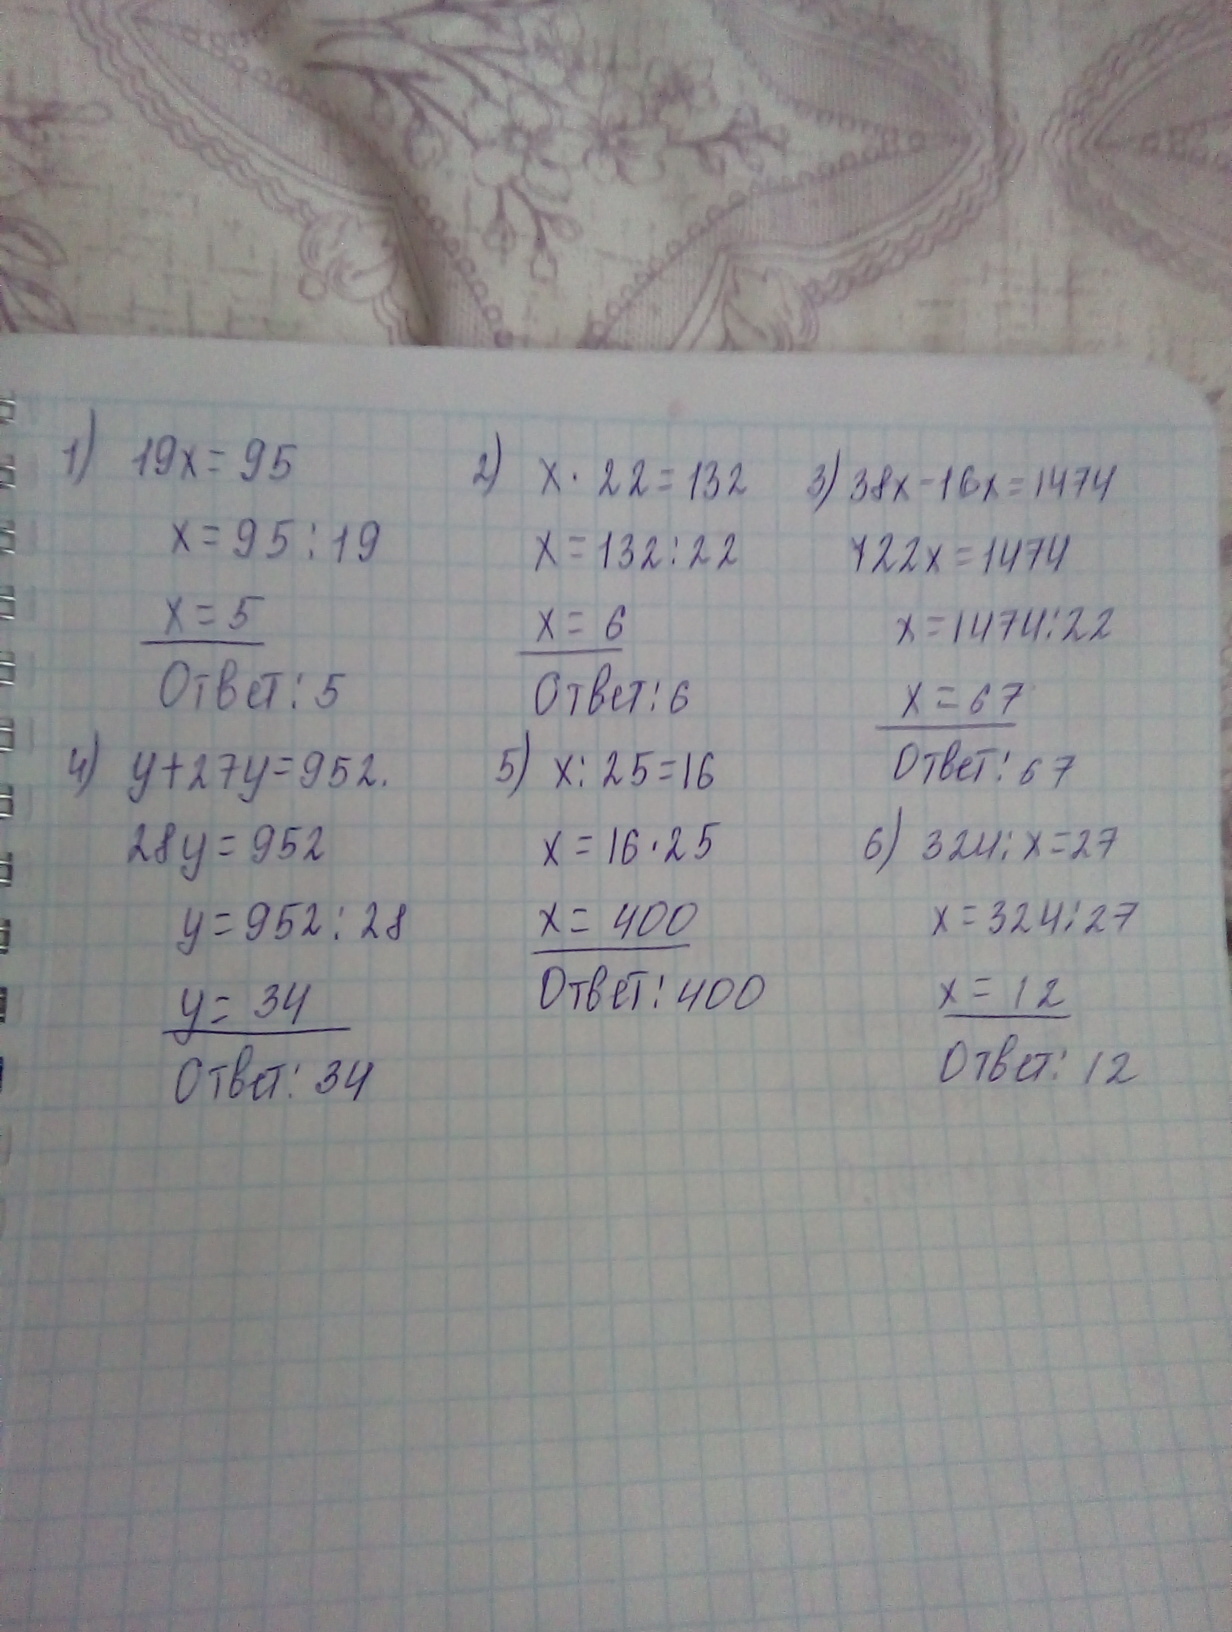 1) 19x=95
x=95:19
x=5
Ответ: 5
2) x·22=132
x=132:22
x=6
Ответ: 6
3) 38x-16x=1474
22x=1474
x=1474:22
x=67
Ответ: 67
4) y+27y=952.
28y=952
y=952:28
y=34
Ответ: 34
5) x:25=16
x=16·25
x=400
Ответ: 400
6) 324:x=27
x=324:27
x=12
Ответ: 12